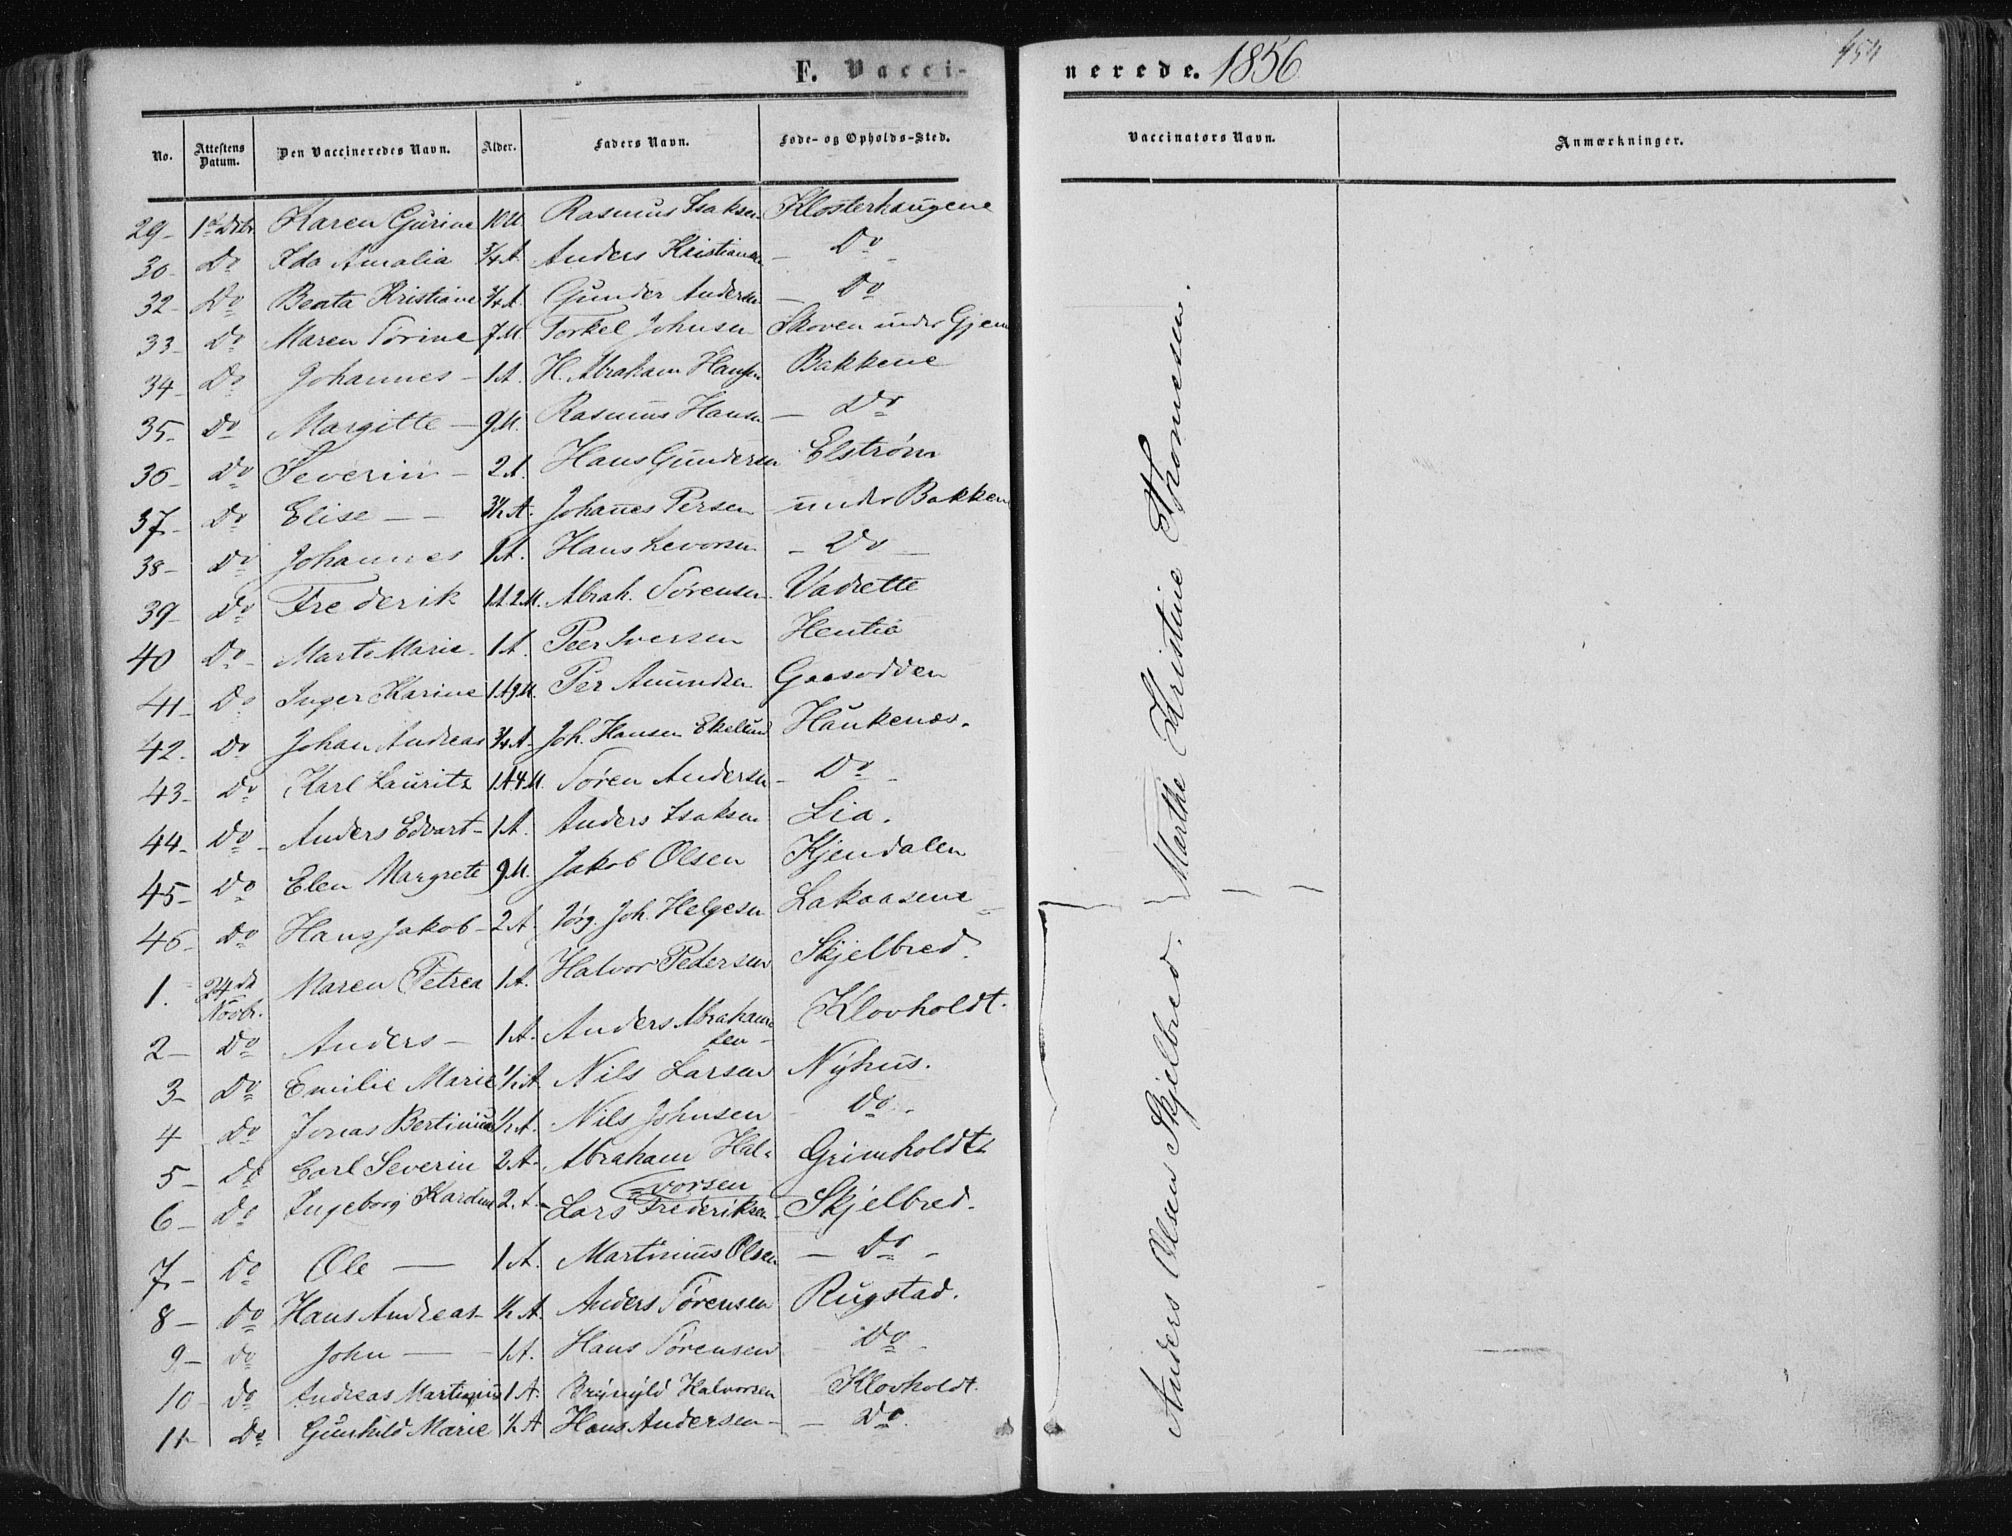 F. Vacci-
nerede. 1856
454
No. Attestens Datum. Den Vaccineredes Navn. Alder. Faders Navn. Føde- og Opholds-Sted. Vaccinators Navn. Anmærkninger.
29- 1ste Karen Gurine 10 M. Rasmus Isaksen Klosterhaugene
30- Do Ida Amalia 3/4 A. Anders Kristiansen - Do -
32- Do Beata Kristiane 3/4 A. Gunder Andersen - Do
33- Do Maren Torine 7 M. Torkel Johnsen Skoven under Gjem
34- Do Johannes - 1 A. H. Abraham Hansen Bakkene
35- Do Margitte - 9 M. Rasmus Hansen - Do
36- Do Severin - 2 A. Hans Gundersen Elstrøm
37- Do Elise - - A. Johanes Persen under Bakken
38- Do Johannes 1 A. Hans Levorsen - Do -
39- Do Frederik 1 A. 2 M. Abrah. Sørensen Vadrette
40 Do Marte Marie 1 A. Peer Iversen Hentia
41- Do Inger Karine 1 A 9 M. Per Amundsen Gaasodden
42- Do Johan Andreas 3/4 A. Joh. Hansen Ekelund Haukenæs.
43- Do Karl Lauritz 1 A 4 M. Søren Andersen - Do -
44- Do Anders Edvart - 1 A. Anders Isaksen Lia.
45- Do Elen Margrete 9 M. Jakob Olsen Kjendalen
46- Do Hans Jakob - 2 A. Jørg. Joh. Helgesen Lakaasene
1. 24de Novbr. Maren Petrea 1 A. Halvor Pedersen Skjelbred.
2- Do Anders - 1 A. Anders Abraham-
sen - Klovholdt.
3- Do Emilie Marie 1/2 A. Nils Larsen Nyhus.
4 Do Jonas Bertinius 1/2 A. Nils Johnsen Do.
5- Do Carl Severin 2 A. Abraham Hal-
=vorsen Grimholdt
6- Do Ingeborg 2 A. - Lars Frederiksen Skjelbred.
7- Do Ole - 1 A. Martinius Olsen - Do -
8- Do Hans Andreas - 1/2 A. Anders Sørensen Rugstad.
9- Do John - 1 A. Hans Sørensen Do -
10- Do Andreas Martinius 1 A. Brynyld Halvorsen Klovholdt.
11- Do Gunhild Marie 1/2 A Hans Andersen - - Do.
Marthe Kristine Thomesen.
Anders Olsen Skjelbred.